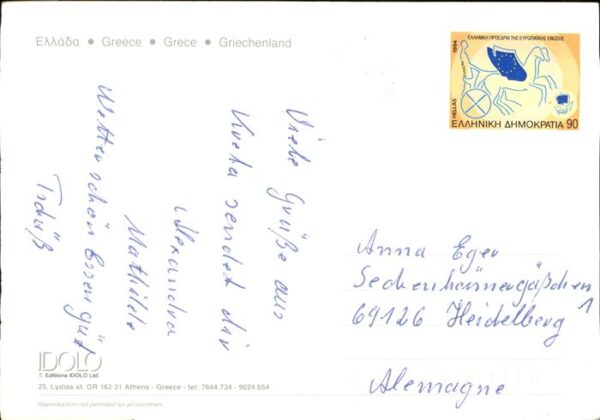 Ελλάδα • Greece • Grece • Griechenland
ΕΛΛΗΝΙΚΗ ΠΡΟΕΔΡΙΑ ΤΗΣ ΕΥΡΩΠΑΪΚΗΣ ΕΝΩΣΗΣ
1994
HELLAS
ΕΛΛΗΝΙΚΗ ΔΗΜΟΚΡΑΤΙΑ 90
Viele Grüße aus
Kreta sendet dir
Alexandra
Mathilde
Wetter schön Essen gut
Tschüß
Anna Eger
Seckenheimergäßchen 1
69126 Heidelberg
Alemagne
IDOLO
© Editions IDOLO Ltd.
25, Lydias st. GR 162 31 Athens - Greece - tel: 7644.734 - 9024.654
Reproduction not permitted for all countries